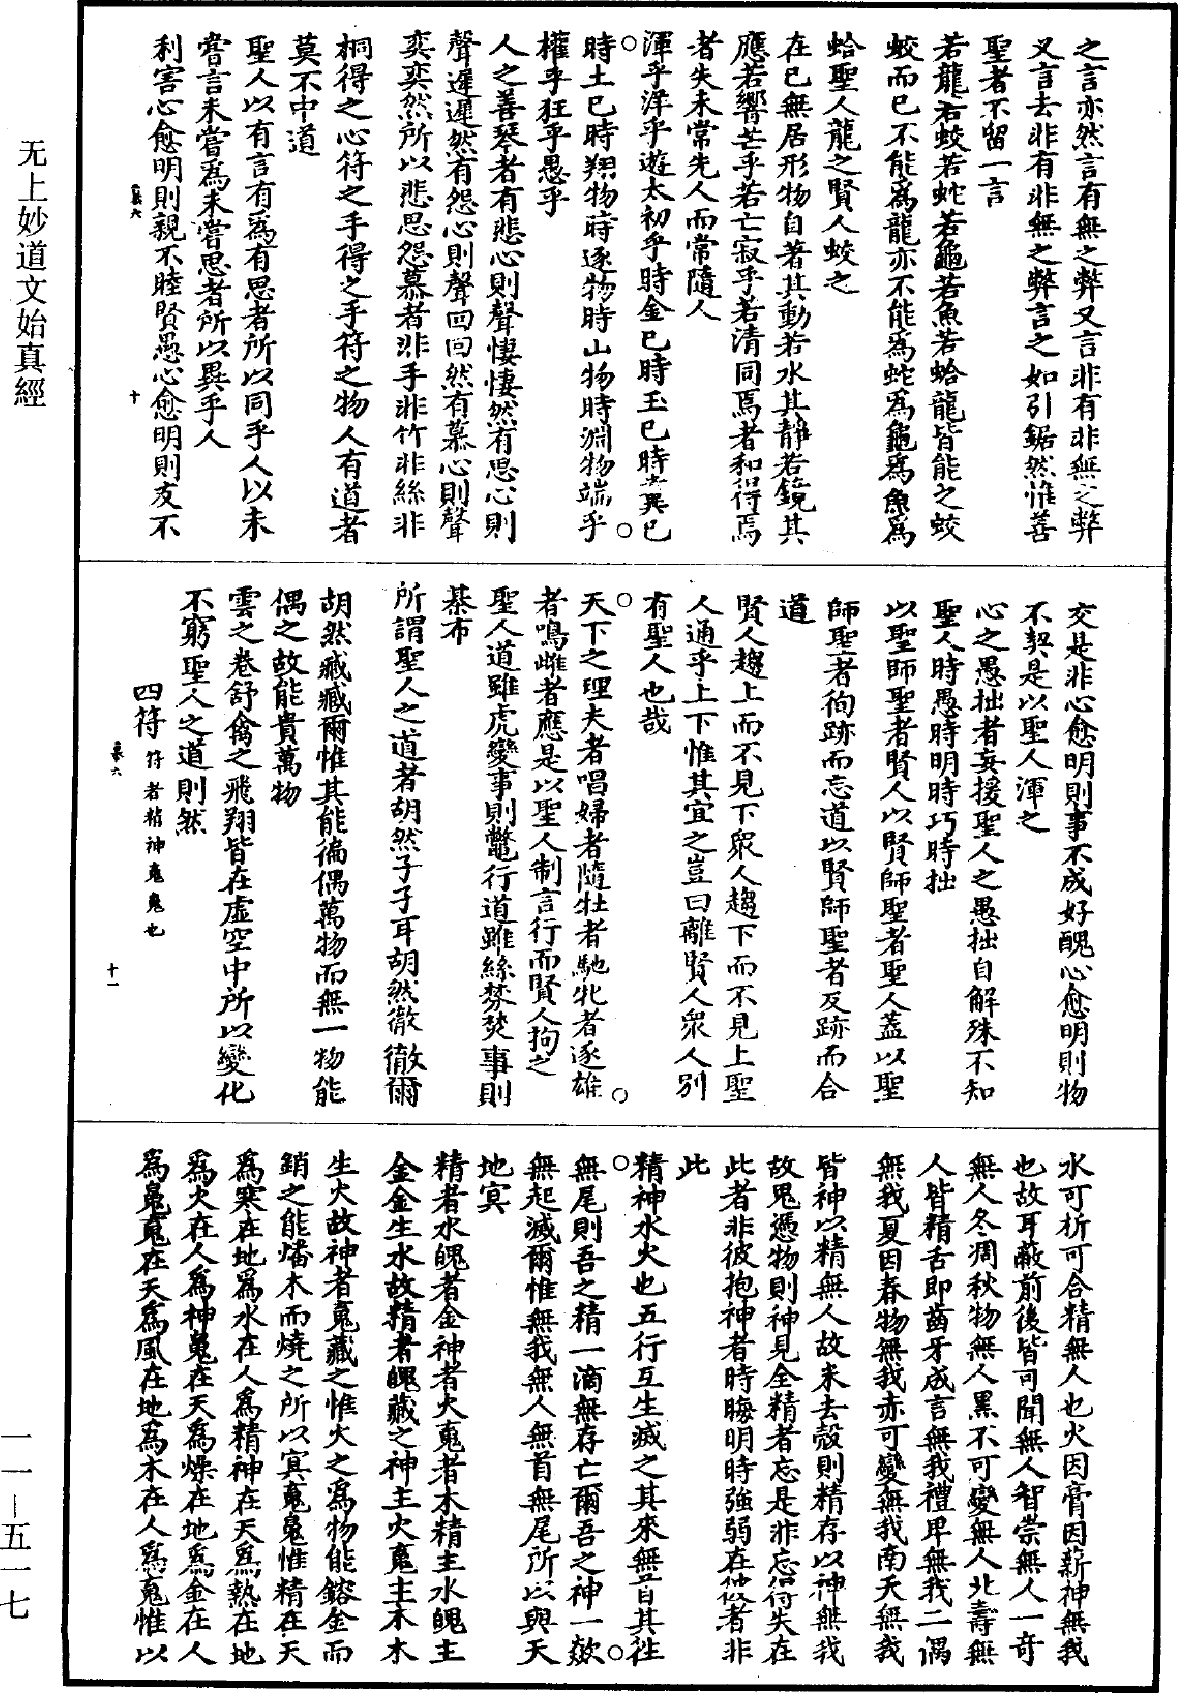 之言亦然言有無之弊又言非有非無之弊
又言去非有非無之弊言之如引鋸然惟善
聖者不留一言
若龍若蛟若蛇若龜若魚若蛤龍皆能之蛟
蛟而已不能為龍亦不能為蛇為龜為魚為
蛤聖人龍之賢人蛟之
在己無居形物自著其動若水其靜若鏡其
應若響芒乎若亡寂乎若清同焉者和得焉
者失未常先人而常隨人
渾乎洋乎遊太初乎時金已時玉已時糞已
時土已時翔物時逐物時山物時淵物端乎
權乎狂乎愚乎
人之善琴者有悲心則聲悽悽然有思心則
聲遲遲然有怨心則聲回回然有慕心則聲
奕奕然所以悲思怨慕者非手非竹非絲非
桐得之心符之手得之手符之物人有道者
莫不中道
聖人以有言有為有思者所以同乎人以未
嘗言未嘗為未嘗思者所以異乎人
利害心愈明則親不睦賢愚心愈明則友不
慕六 十
交是非心愈明則事不成好醜心愈明則物
不契是以聖人渾之
心之愚拙者妄援聖人之愚拙自解殊不知
聖人時愚時明時巧時拙
以聖師聖者賢人以賢師聖者聖人蓋以聖
師聖者徇跡而忘道以賢師聖者反跡而合
道
賢人趨上而不見下眾人趨下而不見上聖
人通乎上下惟其宜之豈曰離賢人眾人別
有聖人也哉
天下之理夫者唱婦者隨牡者馳牝者逐雄
者鳴雌者應是以聖人制言行而賢人拘之
聖人道雖虎變事則鼈行道雖絲棼棼事則
棊布
所謂聖人之道者胡然孑孑耳胡然徹徹爾
胡然臧臧爾惟其能徧偶萬物而無一物能
偶之故能貴萬物
雲之卷舒禽之飛翔皆在虛空中所以變化
不窮聖人之道則然
四符符者精神䰟魄也
慕六 十一
水可析可合精無人也火因膏因薪神無我
也故耳蔽前後皆可聞無人智崇無人一奇
無人冬凋秋物無人黑不可變無人北壽無
人皆精舌即齒牙成言無我禮卑無我二偶
無我夏因春物無我赤可變無我南夭無我
皆神以精無人故米去殼則精存以神無我
故鬼憑物則神見全精者忘是非忘得失在
此者非彼抱神者時晦明時強弱在彼者非
此
精神水火也五行互生滅之其來無首其往
無尾則吾之精一滴無存亡爾吾之神一欻
無起滅爾惟無我無人無首無尾所以與天
地冥
精者水魄者金神者火䰟者木精主水魄主
金金生水故精者魄藏之神主火䰟主木木
生火故神者䰟藏之惟火之為物能鎔金而
銷之能燔木而燒之所以冥䰟魄惟精在天
為寒在地為水在人為精神在天為熱在地
為火在人為神魄在天為燥在地為金在人
為魄䰟在天為風在地為木在人為䰟惟以
无上妙道文始真經
一一—五一七